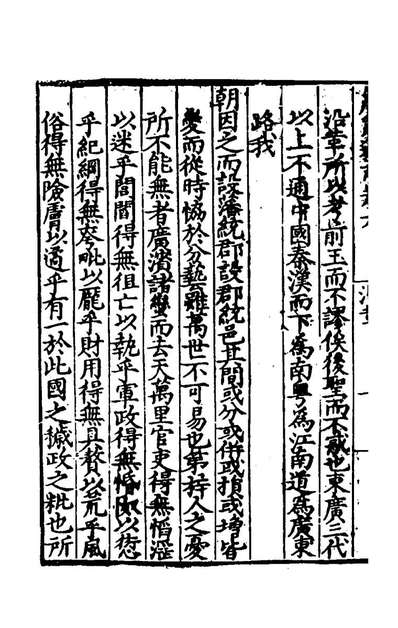 沿革所以考前王而不謬俟後聖而不惑也東廣三代
以上不通中國秦漢而下為南粵為江南道為廣東
路我
朝因之而設藩統郡設郡統邑其間或分或併或損或增皆
變而從時協於分藝雖萬世不可易也第持人之憂
所不能無者廣濱諸蠻而去天萬里官吏得無慆淫
以迷乎閭閻得無徂亡以執乎軍政得無惰以愆
乎紀綱得無以厖乎財用得無具贅以荒乎風
俗得無險膚以適乎有一於此國之穢政之粃也所